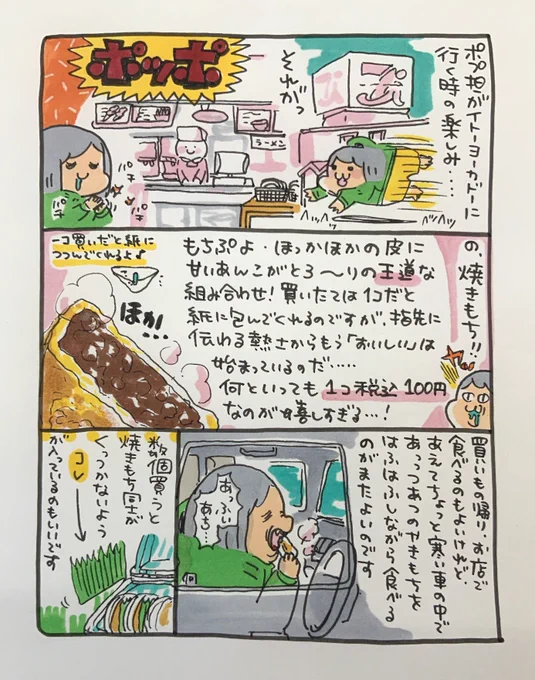 ポプ担がイトーヨーカドーに
行く時の楽しみ....
それがっ
ポッポ
ラーメン
パチ
パチ
パチ
の、焼きもち!!
もちぷよ・ほっかほかの皮に
甘いあんこがとろ〜りの王道な
組み合わせ!買いたては1コだと
紙に包んでくれるのですが、指先に
伝わる熱さからもう「おいしい」は
始まっているのだ.....
何といっても1コ税込100円
なのが嬉しすぎる...!
一コ買いだと紙に
つつんでくれるよ♪
ほか...
買いもの帰り、お店で
食べるのもよいけれど、
あえてちょっと寒い車の中で
あっつあつのやきもちを
はふはふしながら食べる
のがまたよいのです
あっふい
あち...
数個買うと
焼きもち同士が
くっつかないよう
コレ
が入っているのもいいです